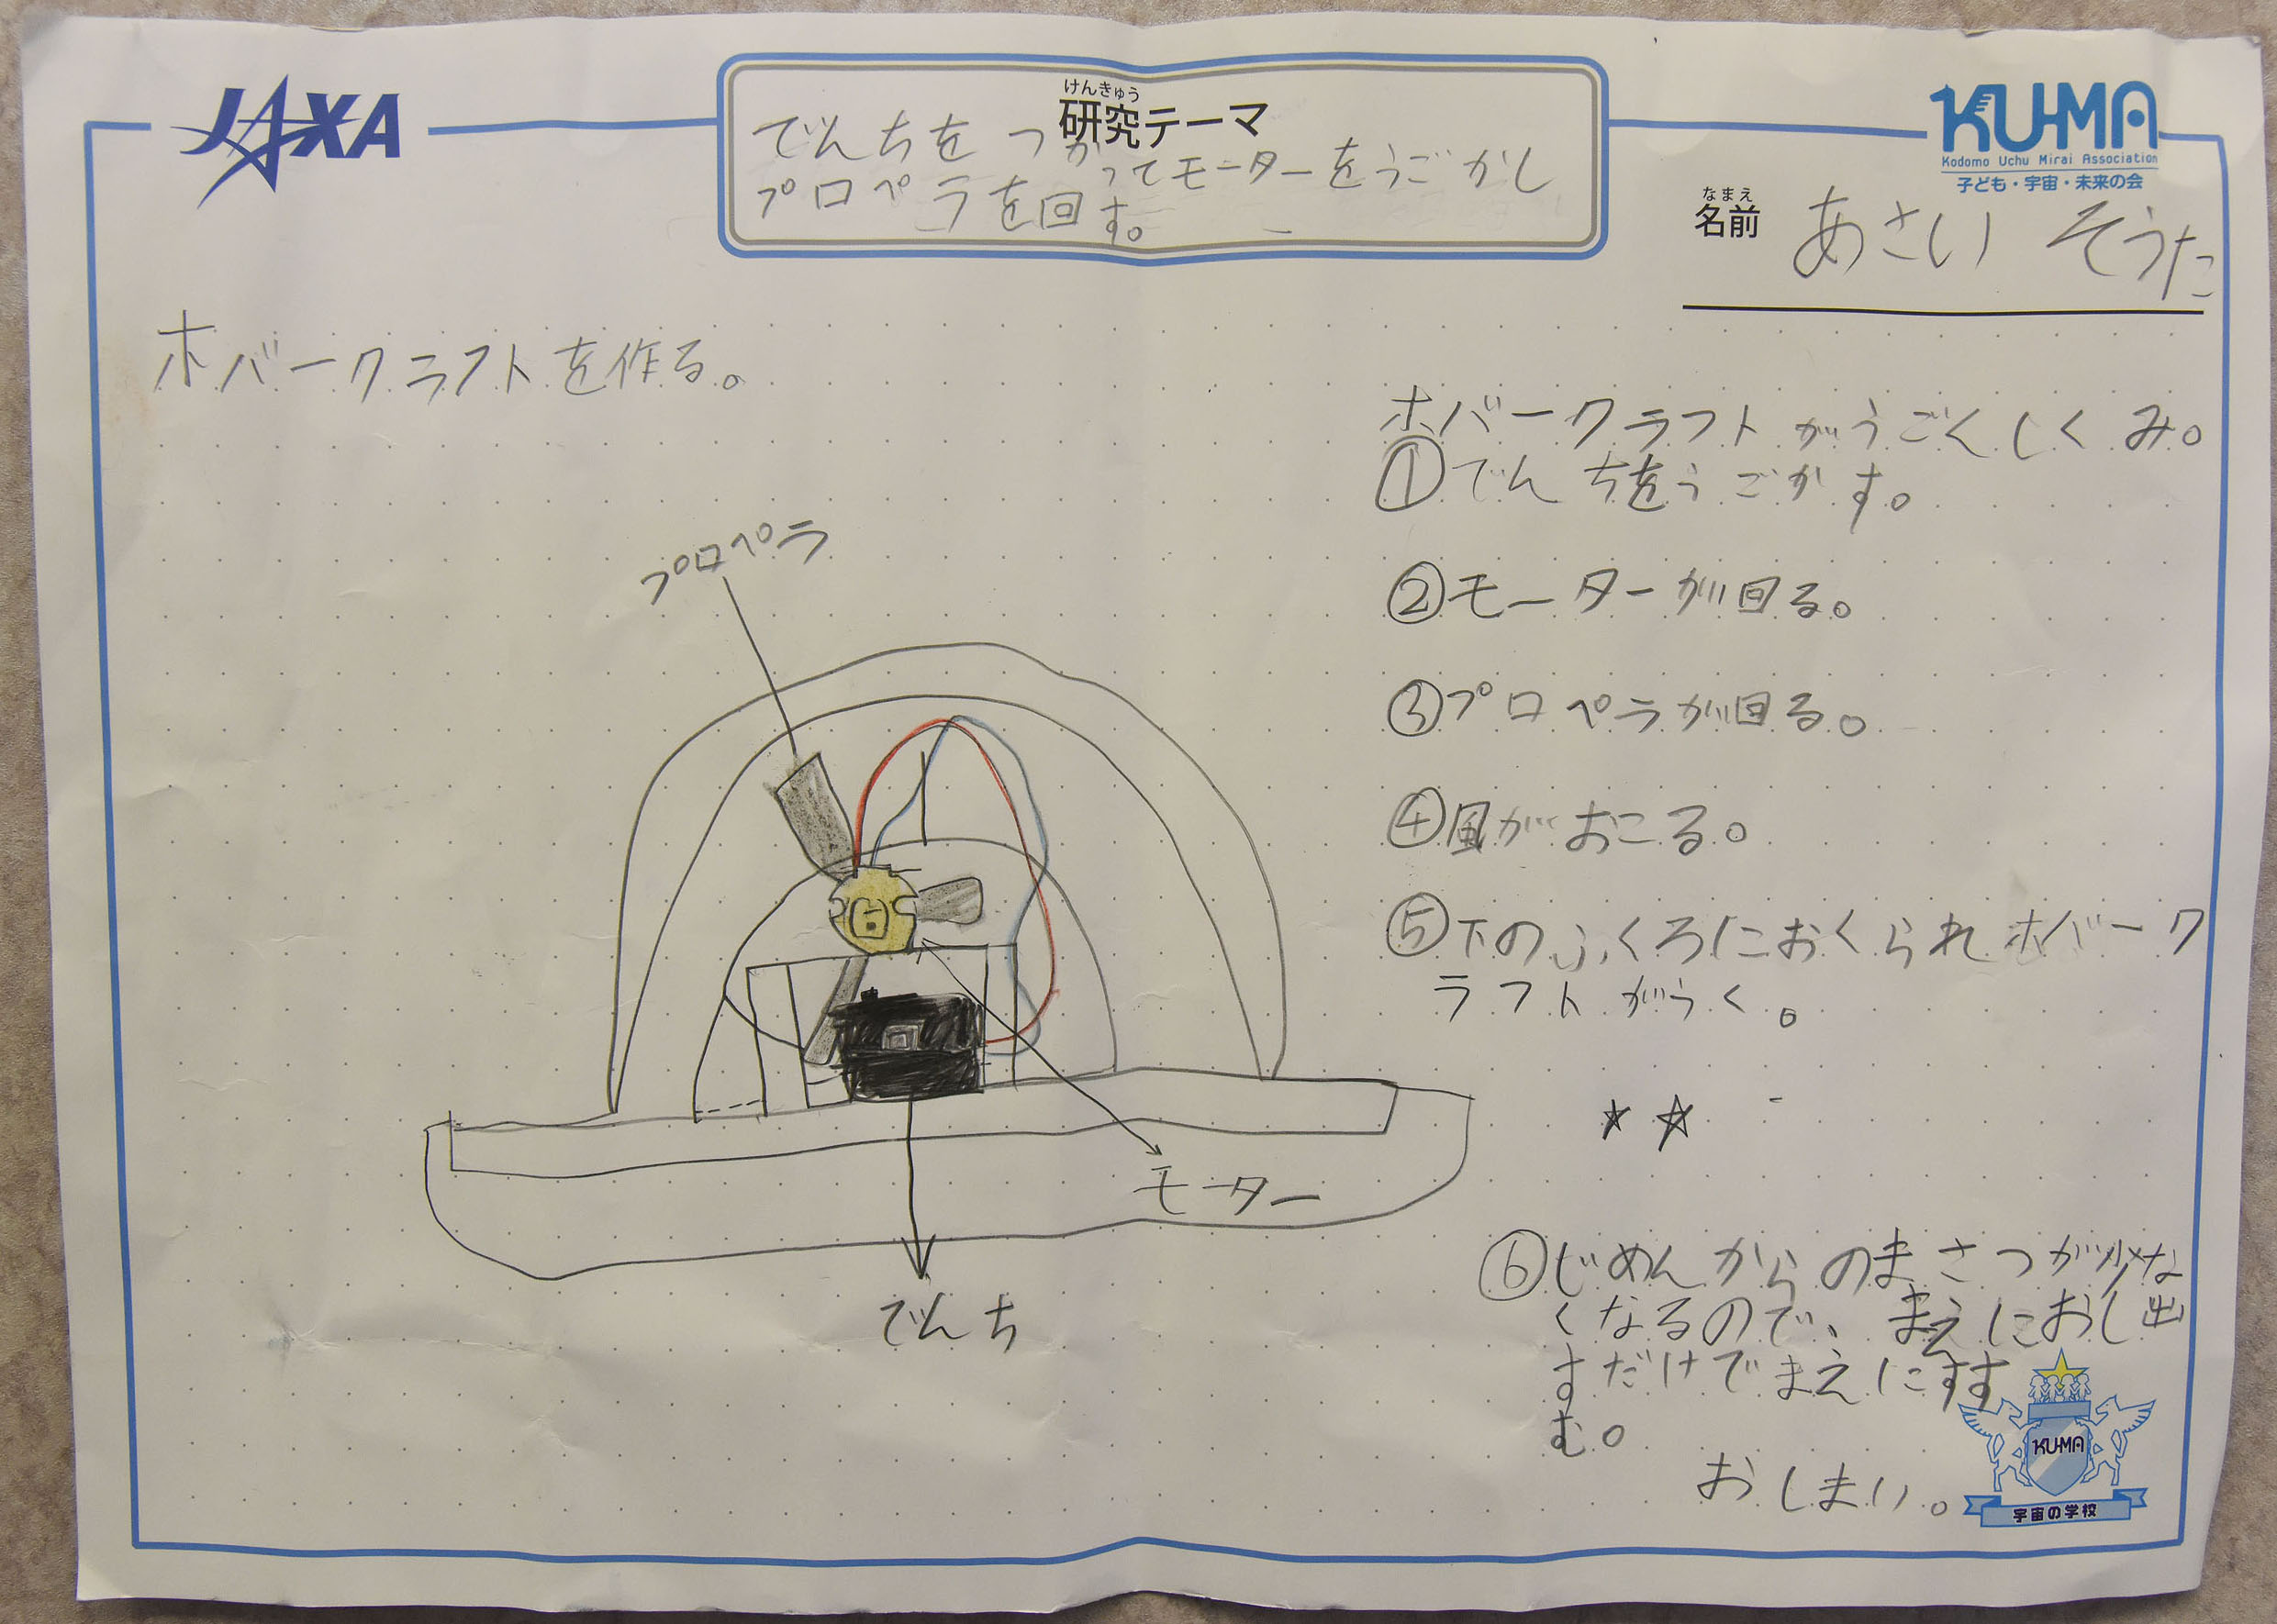 JAXA
けんきゅう
研究テーマ
でんちをつかってモーターをうごかし
プロペラを回す。
KU-MA
Kodomo Uchu Mirai Association
子ども・宇宙・未来の会
なまえ
名前
あさい そうた
ホバークラフトを作る。
プロペラ
モーター
でんち
ホバークラフトがうごくしくみ。
①でんちをうごかす。
②モーターが回る。
③プロペラが回る。
④風がおこる。
⑤下のふくろにおくられホバーク
ラフトがうく。
⑥じめんからのまさつが少な
くなるので、まえにおし出
すだけでまえにすす
む。
おしまい。
KU-MA
宇宙の学校